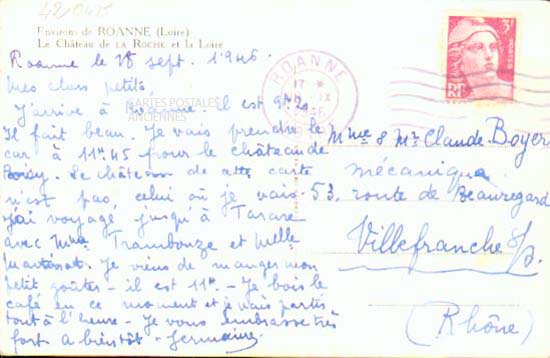 Environs de ROANNE (Loire)
Le Château de LA ROCHE et la Loire
Roanne le 18 sept. 1946.
Mes chers petits,
J'arrive à Roanne. Il est 9h20.
Il fait beau. Je vais prendre le
car à 11h45 pour le château de
Le château de cette carte
n'est pas celui où je vais
J'ai voyagé jusqu'à Tarare
avec Mme Trambouze et Melle
Je viens de manger mon
petit goûter - il est 11h - Je bois le
café en ce moment et je vais partir
tout à l'heure - Je vous embrasse très
fort a bientôt - Germaine
CARTES POSTALES
ANCIENNES
ROANNE
17
IX
3F
POSTES
RF
Mme & Mr Claude Boyer
mécanique
53, route de Beauregard
Villefranche s/s.
(Rhône)